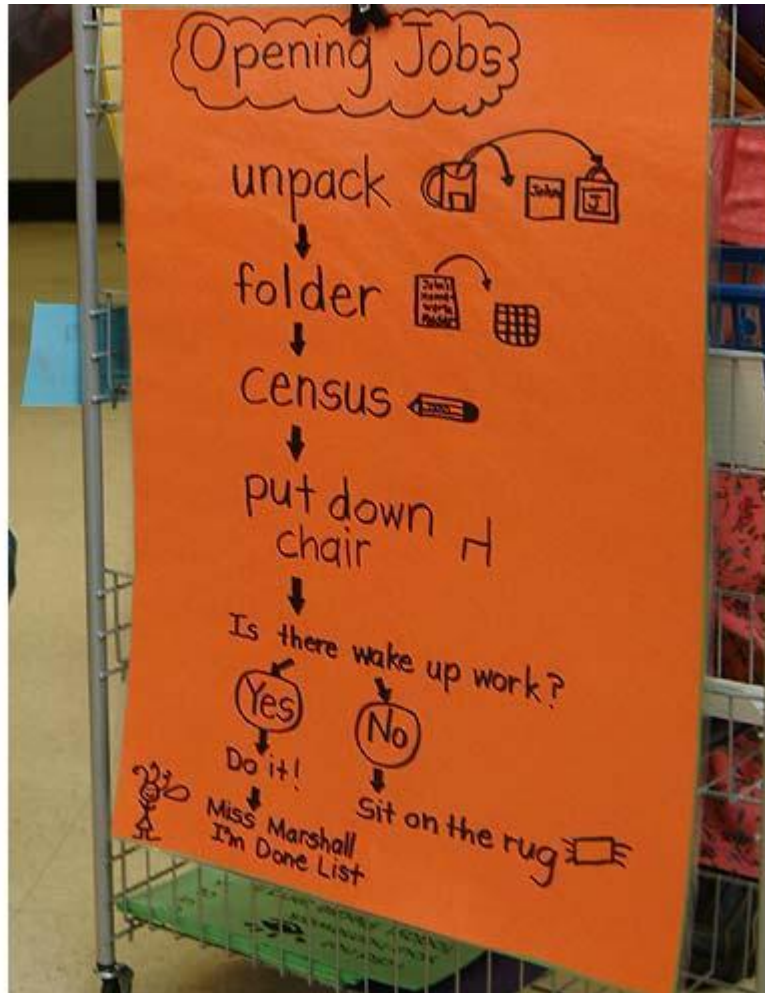 Opening Jobs
unpack
John
J
folder
John's
Home-
work
Folder
census
put down
chair
Is there wake up work?
Yes
No
Do it!
Sit on the rug
Miss Marshall
I'm Done List